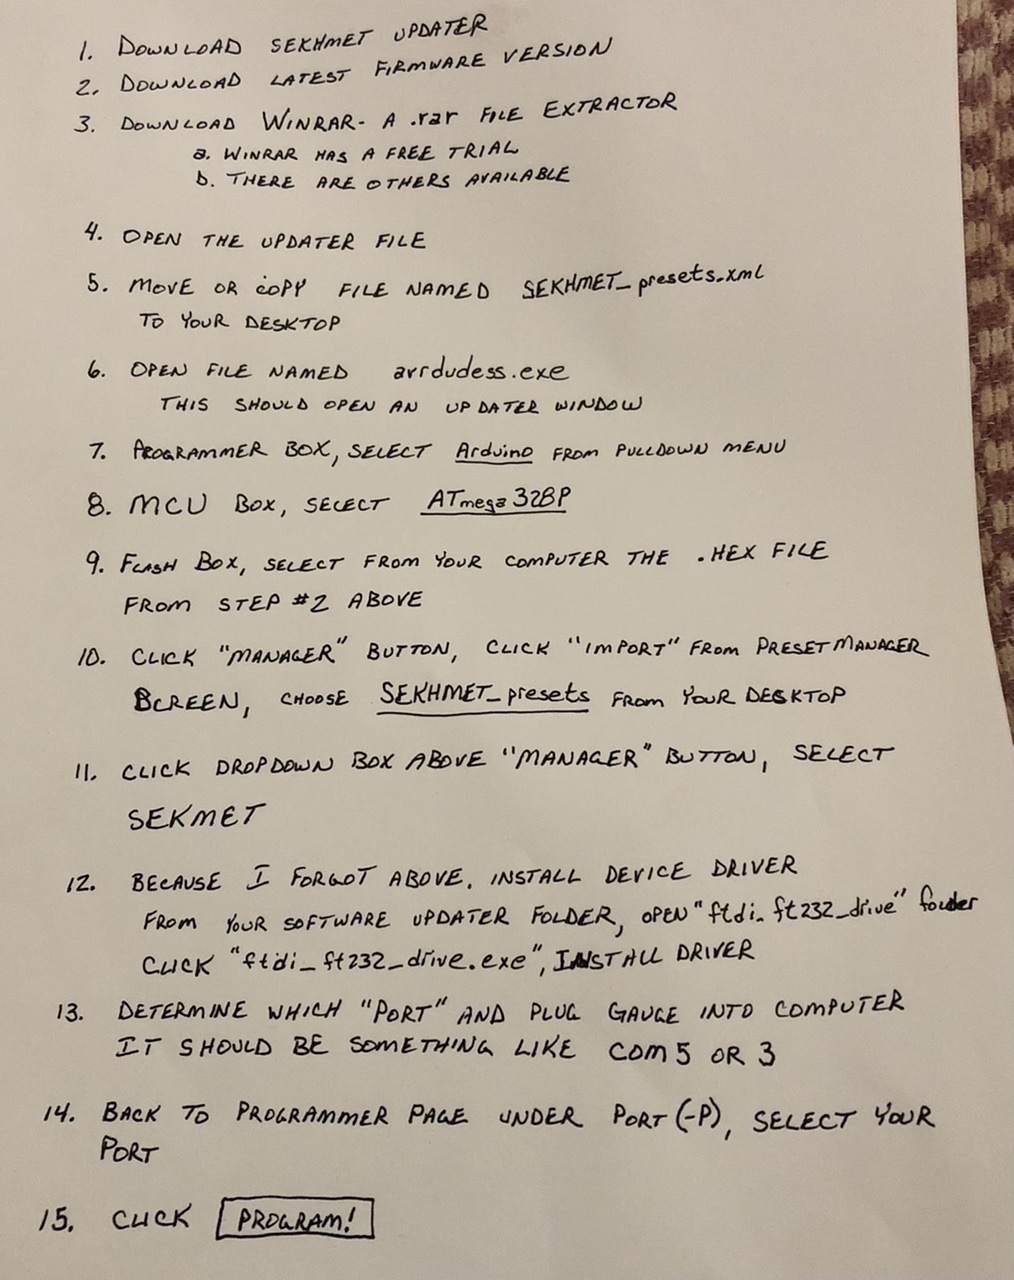 1. DOWNLOAD SEKHMET UPDATER
2. DOWNLOAD LATEST FIRMWARE VERSION
3. DOWNLOAD WINRAR- A .rar FILE EXTRACTOR
a. WINRAR HAS A FREE TRIAL
b. THERE ARE OTHERS AVAILABLE
4. OPEN THE UPDATER FILE
5. MOVE OR COPY FILE NAMED SEKHMET_presets.xml
TO YOUR DESKTOP
6. OPEN FILE NAMED avrdudess.exe
THIS SHOULD OPEN AN UPDATER WINDOW
7. PROGRAMMER BOX, SELECT Arduino FROM PULLDOWN MENU
8. MCU BOX, SELECT ATmega328P
9. FLASH BOX, SELECT FROM YOUR COMPUTER THE .HEX FILE
FROM STEP #2 ABOVE
10. CLICK "MANAGER" BUTTON, CLICK "IMPORT" FROM PRESET MANAGER
SCREEN, CHOOSE SEKHMET_presets FROM YOUR DESKTOP
11. CLICK DROPDOWN BOX ABOVE "MANAGER" BUTTON, SELECT
SEKMET
12. BECAUSE I FORGOT ABOVE. INSTALL DEVICE DRIVER
FROM YOUR SOFTWARE UPDATER FOLDER, OPEN "ftdi_ft232_drive" folder
CLICK "ftdi_ft232_drive.exe", INSTALL DRIVER
13. DETERMINE WHICH "PORT" AND PLUG GAUGE INTO COMPUTER
IT SHOULD BE SOMETHING LIKE COM 5 OR 3
14. BACK TO PROGRAMMER PAGE UNDER PORT (-P), SELECT YOUR
PORT
15. CLICK PROGRAM!